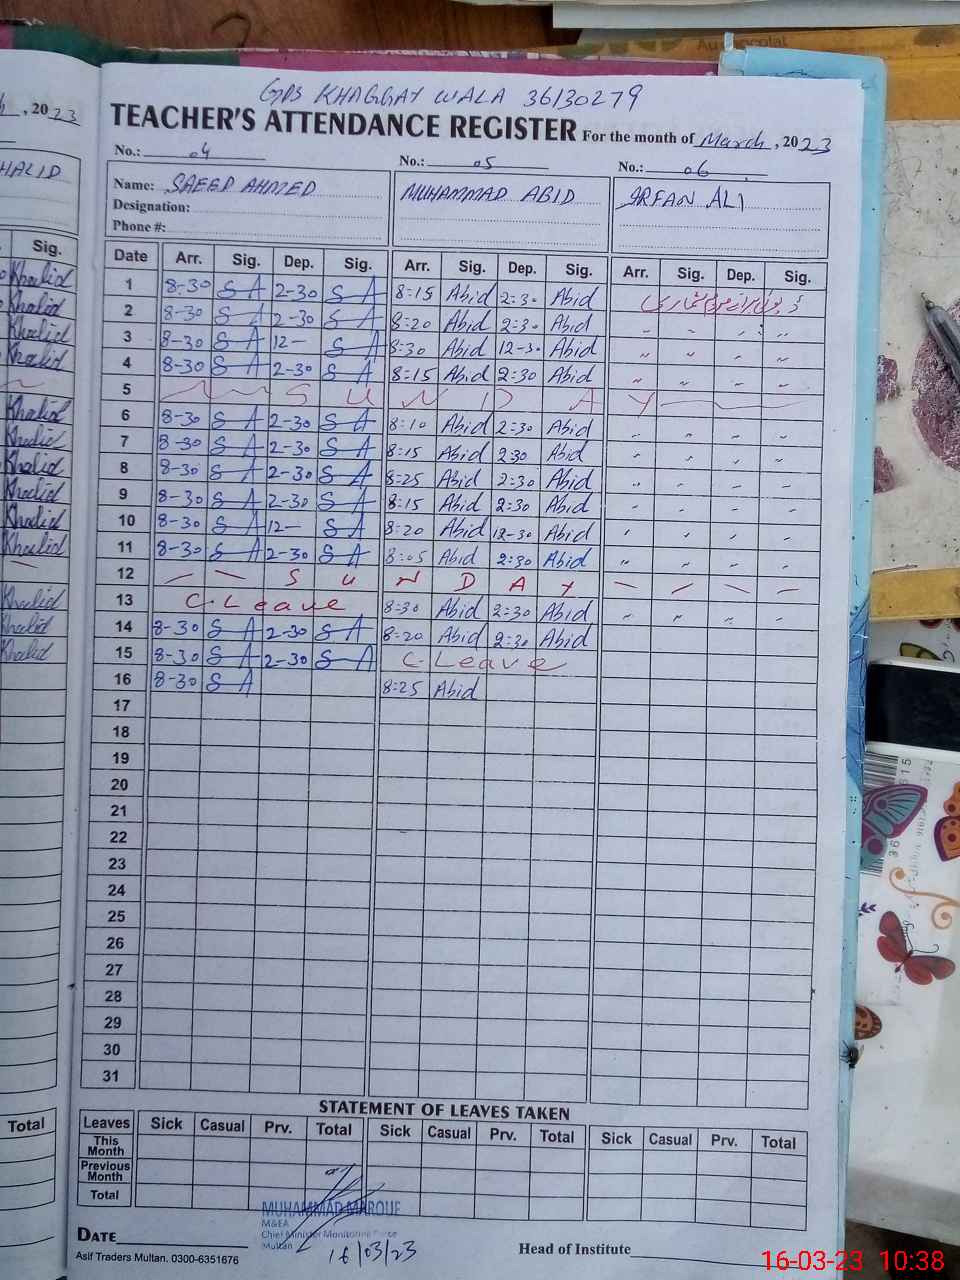 GPS KHAGGAY WALA 36130279
TEACHER'S ATTENDANCE REGISTER For the month of March, 2023
No.: 04 No.: 05 No.: 06
Name: SAEED AHMED MUHAMMAD ABID IRFAN ALI
Designation:
Phone #:
Date Arr. Sig. Dep. Sig. Arr. Sig. Dep. Sig. Arr. Sig. Dep. Sig.
1 8-30 S A 2-30 S A 8:15 Abid 2:30 Abid
2 8-30 S A 2-30 S A 8:20 Abid 2:30 Abid " " : "
3 8-30 S A 12- S A 8:30 Abid 12-30 Abid " " " "
4 8-30 S A 2-30 S A 8:15 Abid 2:30 Abid " " " "
5 S U N D A Y
6 8-30 S A 2-30 S A 8:10 Abid 2:30 Abid " " " "
7 8-30 S A 2-30 S A 8:15 Abid 2:30 Abid " " " "
8 8-30 S A 2-30 S A 8:25 Abid 2:30 Abid " " " "
9 8-30 S A 2-30 S A 8:15 Abid 2:30 Abid " " " "
10 8-30 S A 12- S A 8:20 Abid 12-30 Abid " " " "
11 8-30 S A 2-30 S A 8:05 Abid 2:30 Abid " " " "
12 S U N D A Y
13 C-Leave 8:30 Abid 2:30 Abid " " " "
14 8-30 S A 2-30 S A 8:20 Abid 2:30 Abid
15 8-30 S A 2-30 S A C-Leave
16 8-30 S A 8:25 Abid
17
18
19
20
21
22
23
24
25
26
27
28
29
30
31
STATEMENT OF LEAVES TAKEN
Leaves Sick Casual Prv. Total Sick Casual Prv. Total Sick Casual Prv. Total
This Month
Previous Month
Total
MUHAMMAD MAROUF
M&EA
Chief Minister Monitoring Force
Multan
16/03/23
DATE
Head of Institute
Asif Traders Multan. 0300-6351676
16-03-23 10:38
, 2023
HALID
Sig.
Khalid
Khalid
Khalid
Khalid
Khalid
Khalid
Khalid
Khalid
Khalid
Khalid
Khalid
Khalid
Khalid
Total